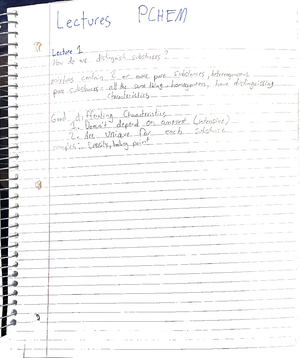 Lectures PCHEM
Lecture 1
How do we distinguish substances?
mixtures contain 2 or more pure substances, heterogenous
pure substances: all the same thing, homogenous, have distinguishing
characteristics
Good differiating Characteristics
1. Doesn't depend on amount (intensive)
2. Are unique for each substance
examples: Density, boiling point